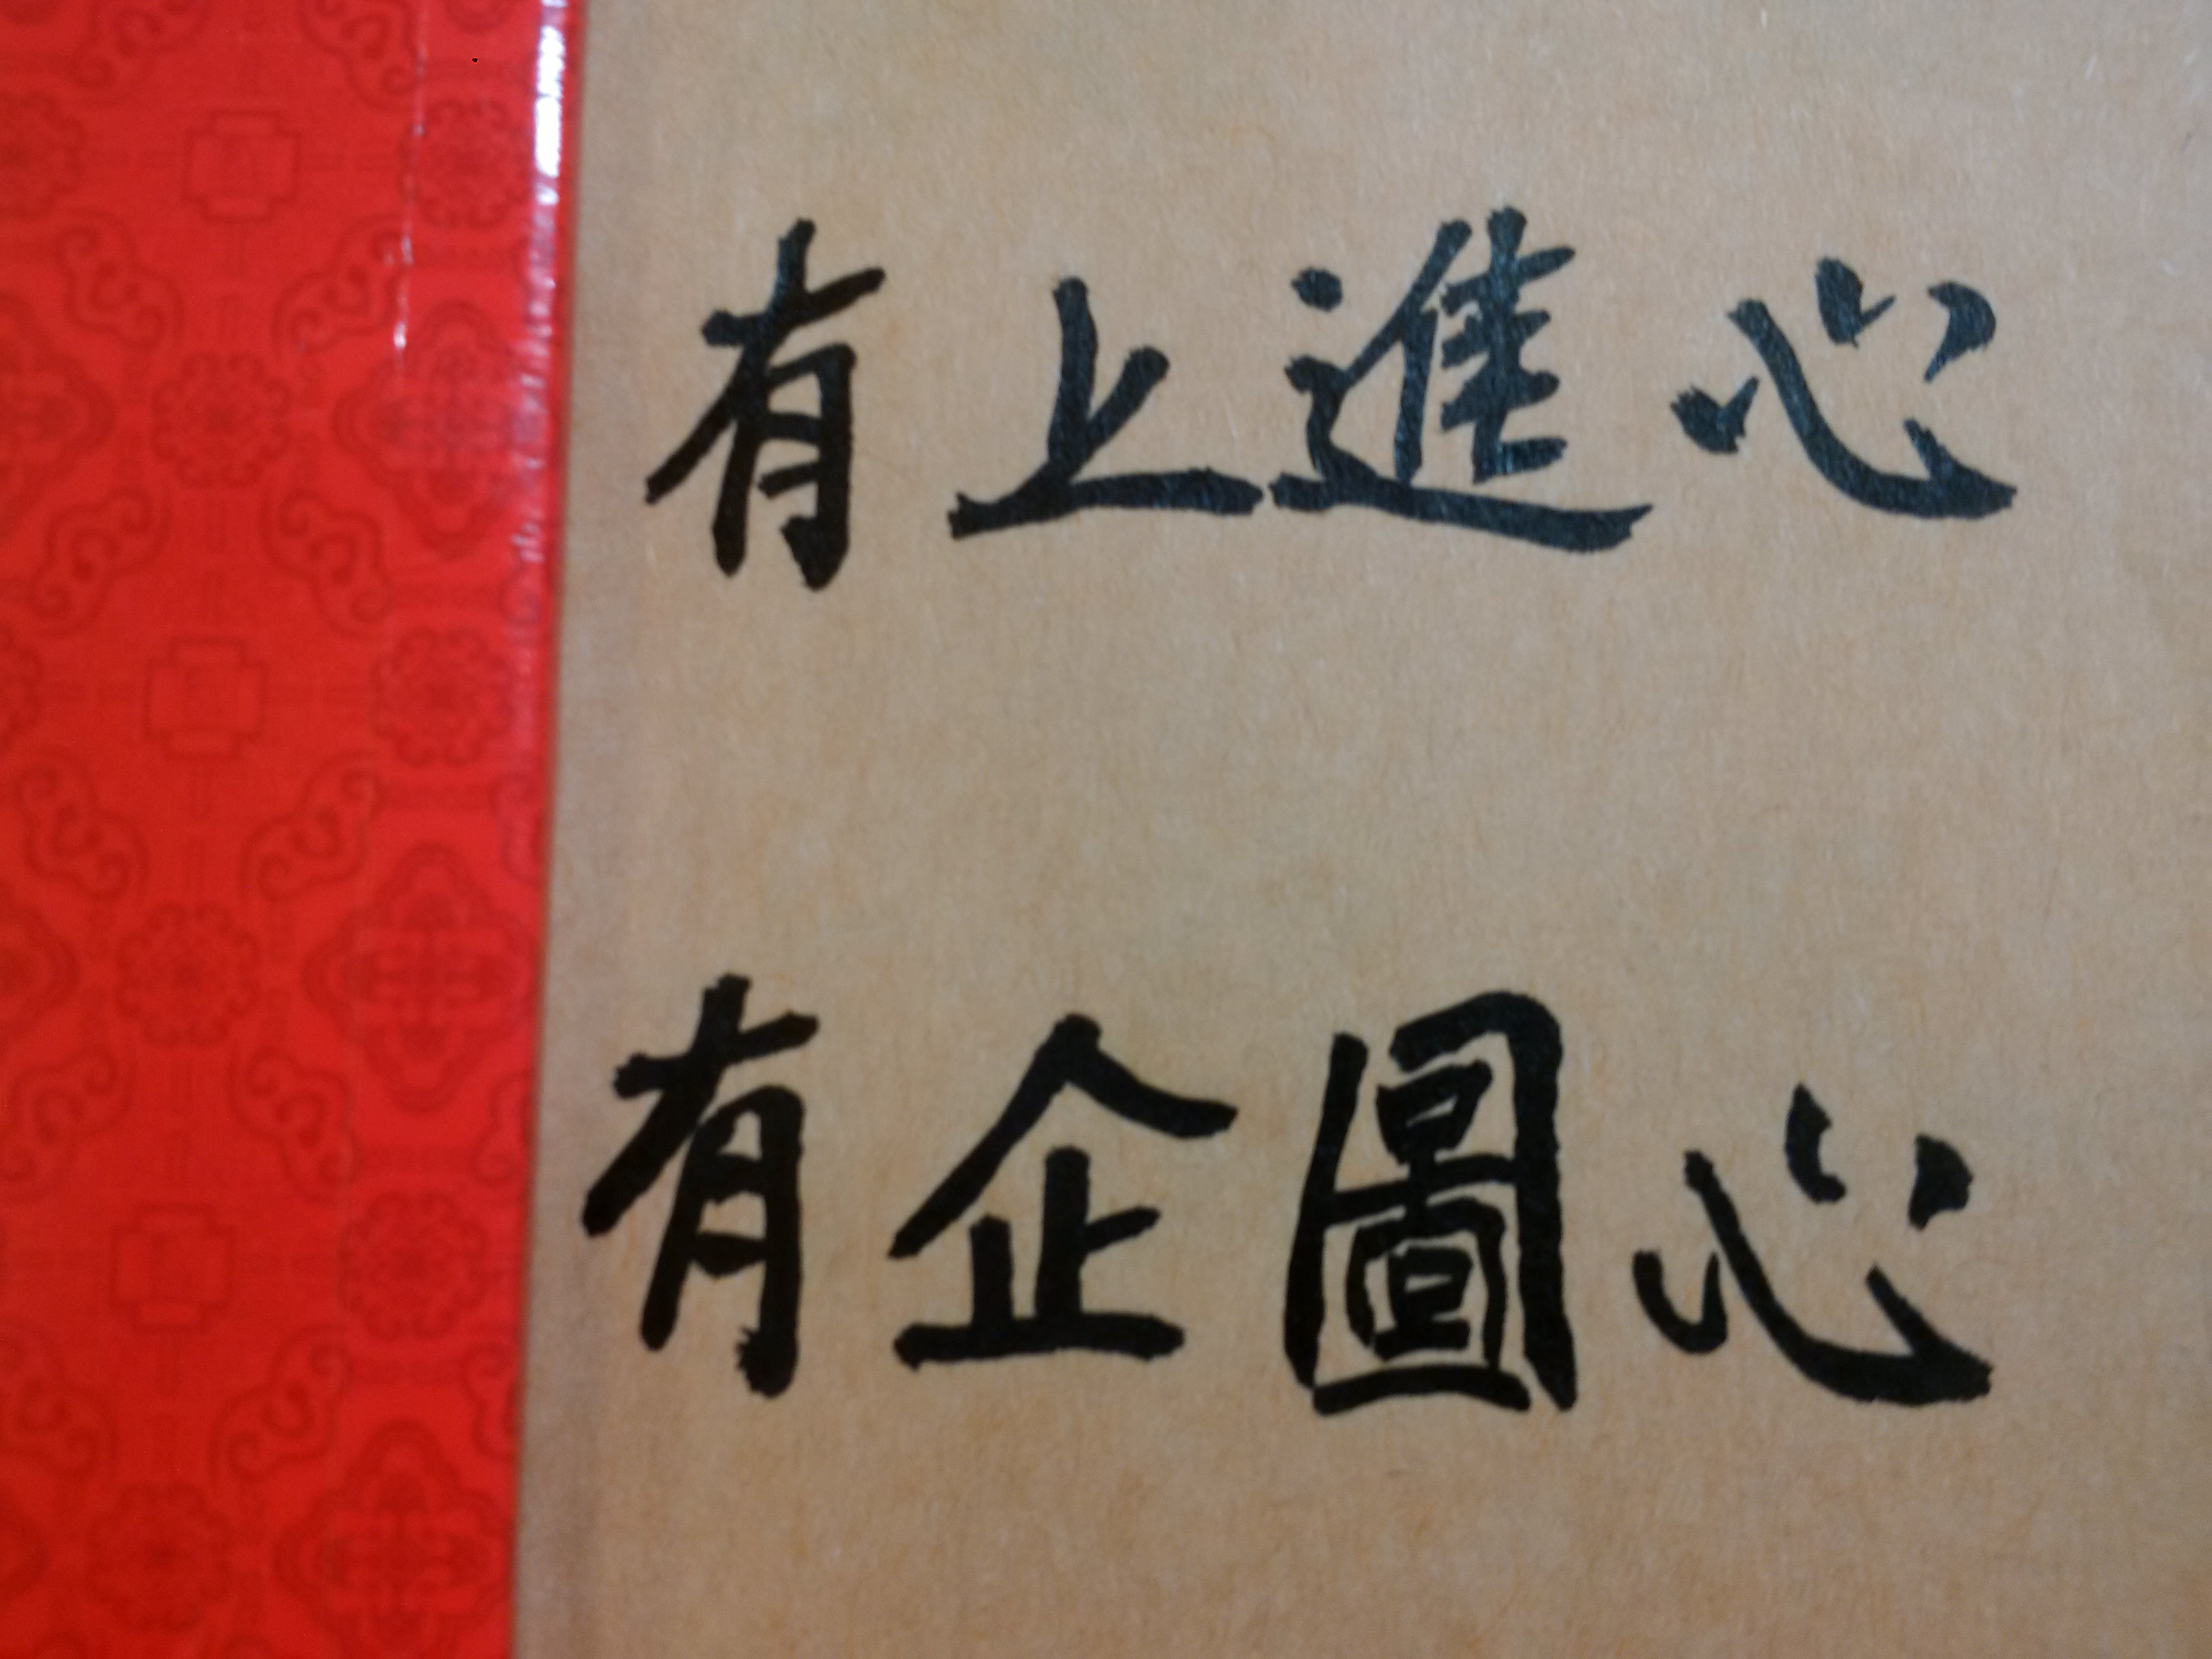 有上進心
有企圖心